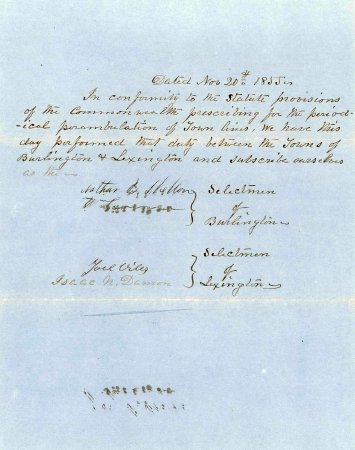 Dated Nov 20th 1855.
In conformity to the Statute provisions
of the Commonwealth prescribing for the period-
ical perambulation of Town lines. We have this
day performed that duty between the Towns of
Burlington & Lexington and subscribe ourselves
as the
Selectmen
of
Burlington
Selectmen
of
Lexington
Joel Viles
Isaac N. Damon